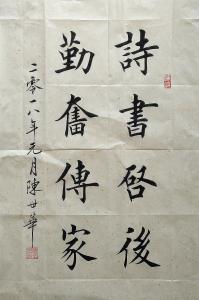 詩書啓後
勤奮傳家
二零一八年元月陳世華